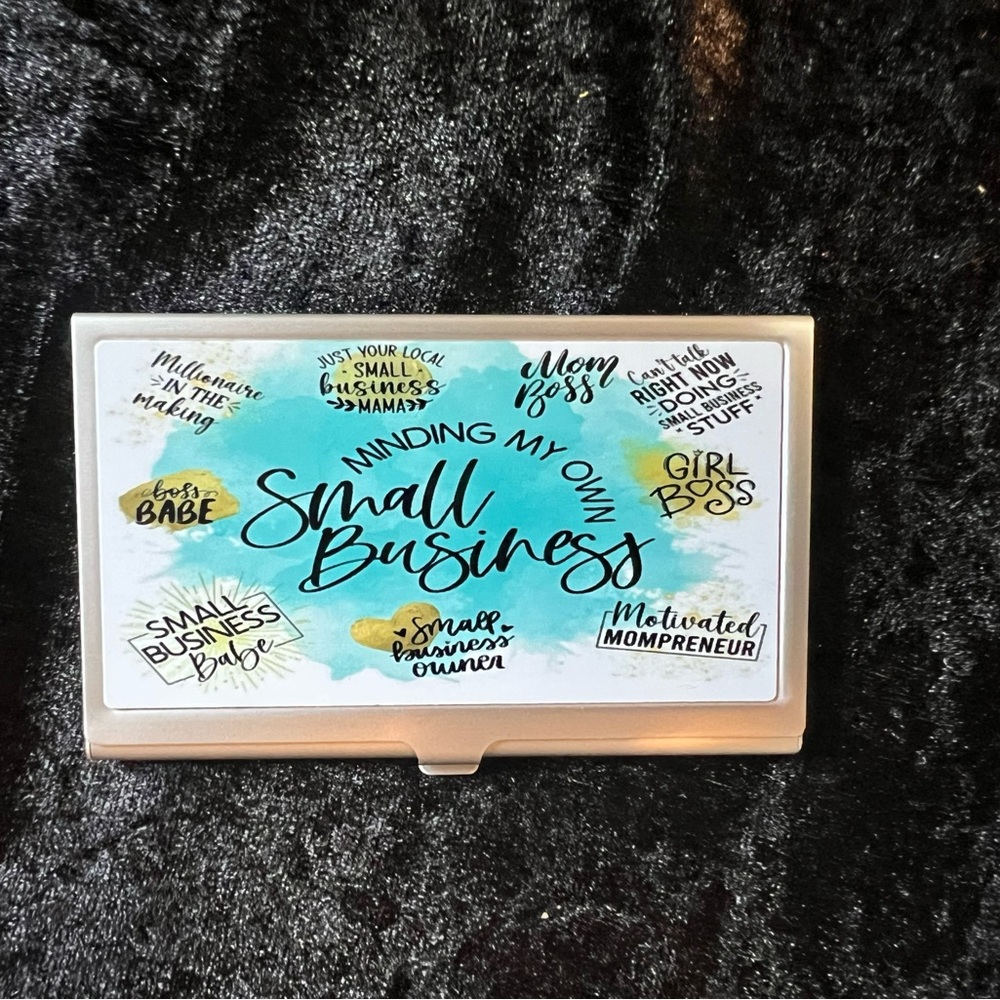 Millionaire
IN THE
making
JUST YOUR LOCAL
SMALL
business
MAMA
Mom
Boss
Can't talk
RIGHT NOW
DOING
SMALL BUSINESS
STUFF
MINDING MY OWN
Small
Business
boss
BABE
GiRL
BOSS
SMALL
BUSINESS
Babe
Small
business
owner
Motivated
MOMPRENEUR